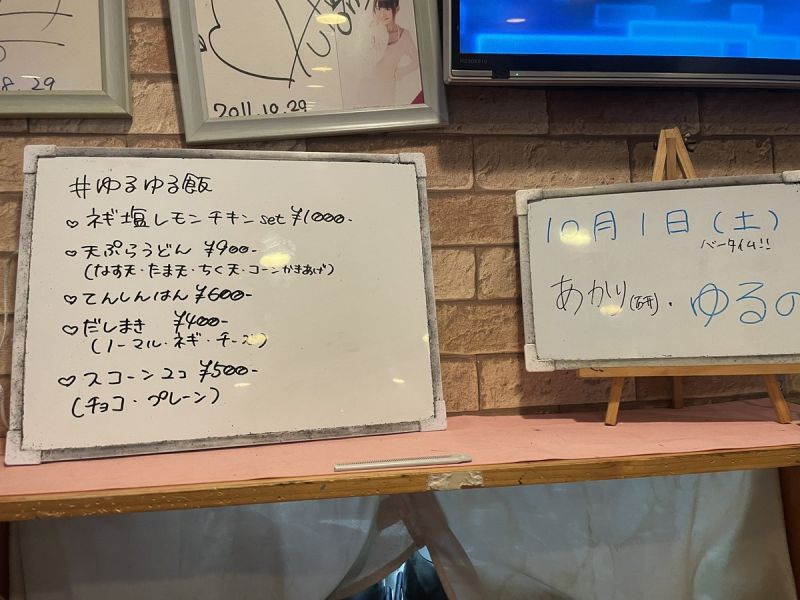 8.29
2011.10.29
#ゆるゆる飯
♡ ネギ塩レモンチキンset ¥1000-
♡ 天ぷらうどん ¥900-
(なす天・たま天・ちく天・コーンかきあげ)
♡ てんしんはん ¥600-
♡ だしまき ¥400-
(ノーマル・ネギ・チーズ)
♡ スコーン2コ ¥500-
(チョコ・プレーン)
10月1日(土)
バータイム!!
あかり(研)・ゆるの